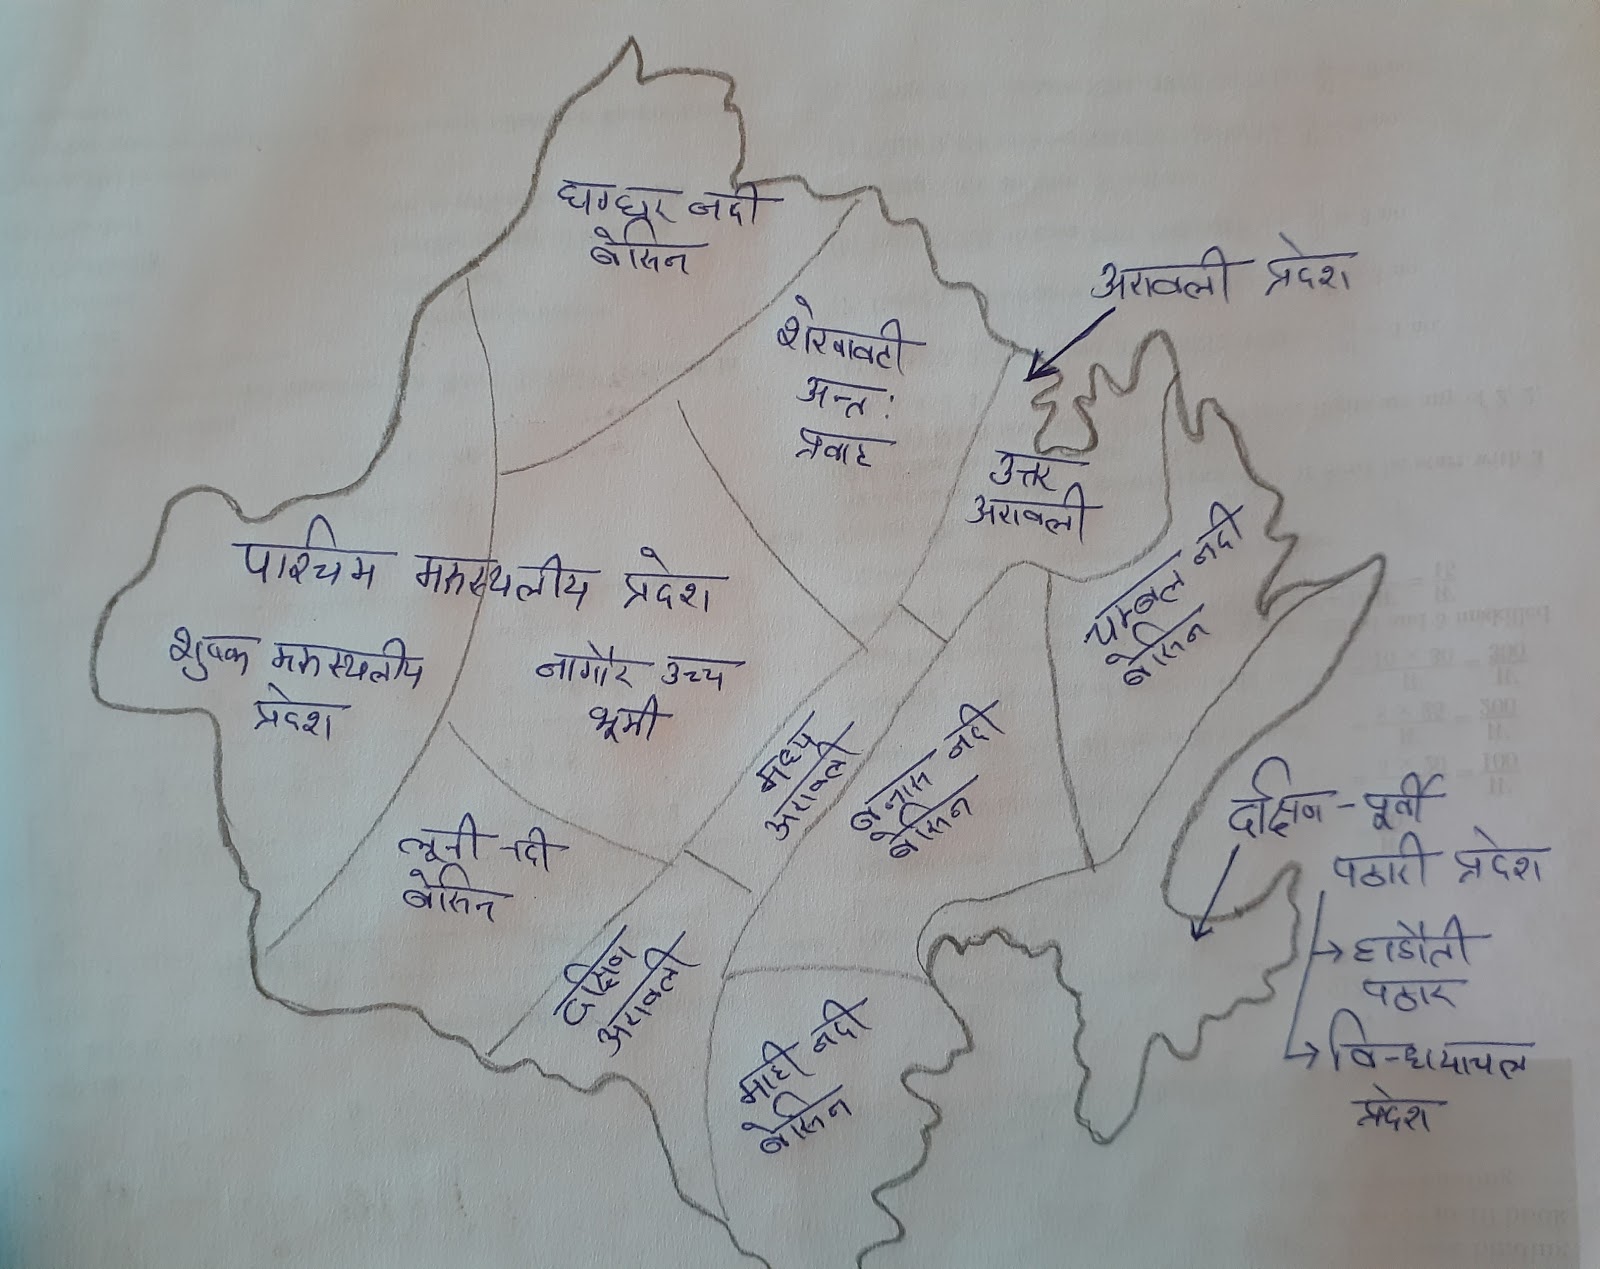 घग्घर नदी
बेसिन
अरावली प्रदेश
शेखावटी
अन्त:
प्रवाह
उत्तर
अरावली
पश्चिम मरूस्थलीय प्रदेश
शुष्क मरूस्थलीय
प्रदेश
नागौर उच्च
भूमी
चम्बल नदी
बेसिन
मध्य
अरावली
बनास नदी
बेसिन
लूनी नदी
बेसिन
दक्षिण
अरावली
माही नदी
बेसिन
दक्षिण-पूर्वी
पठारी प्रदेश
हाडौती
पठार
विन्धयाचल
प्रदेश